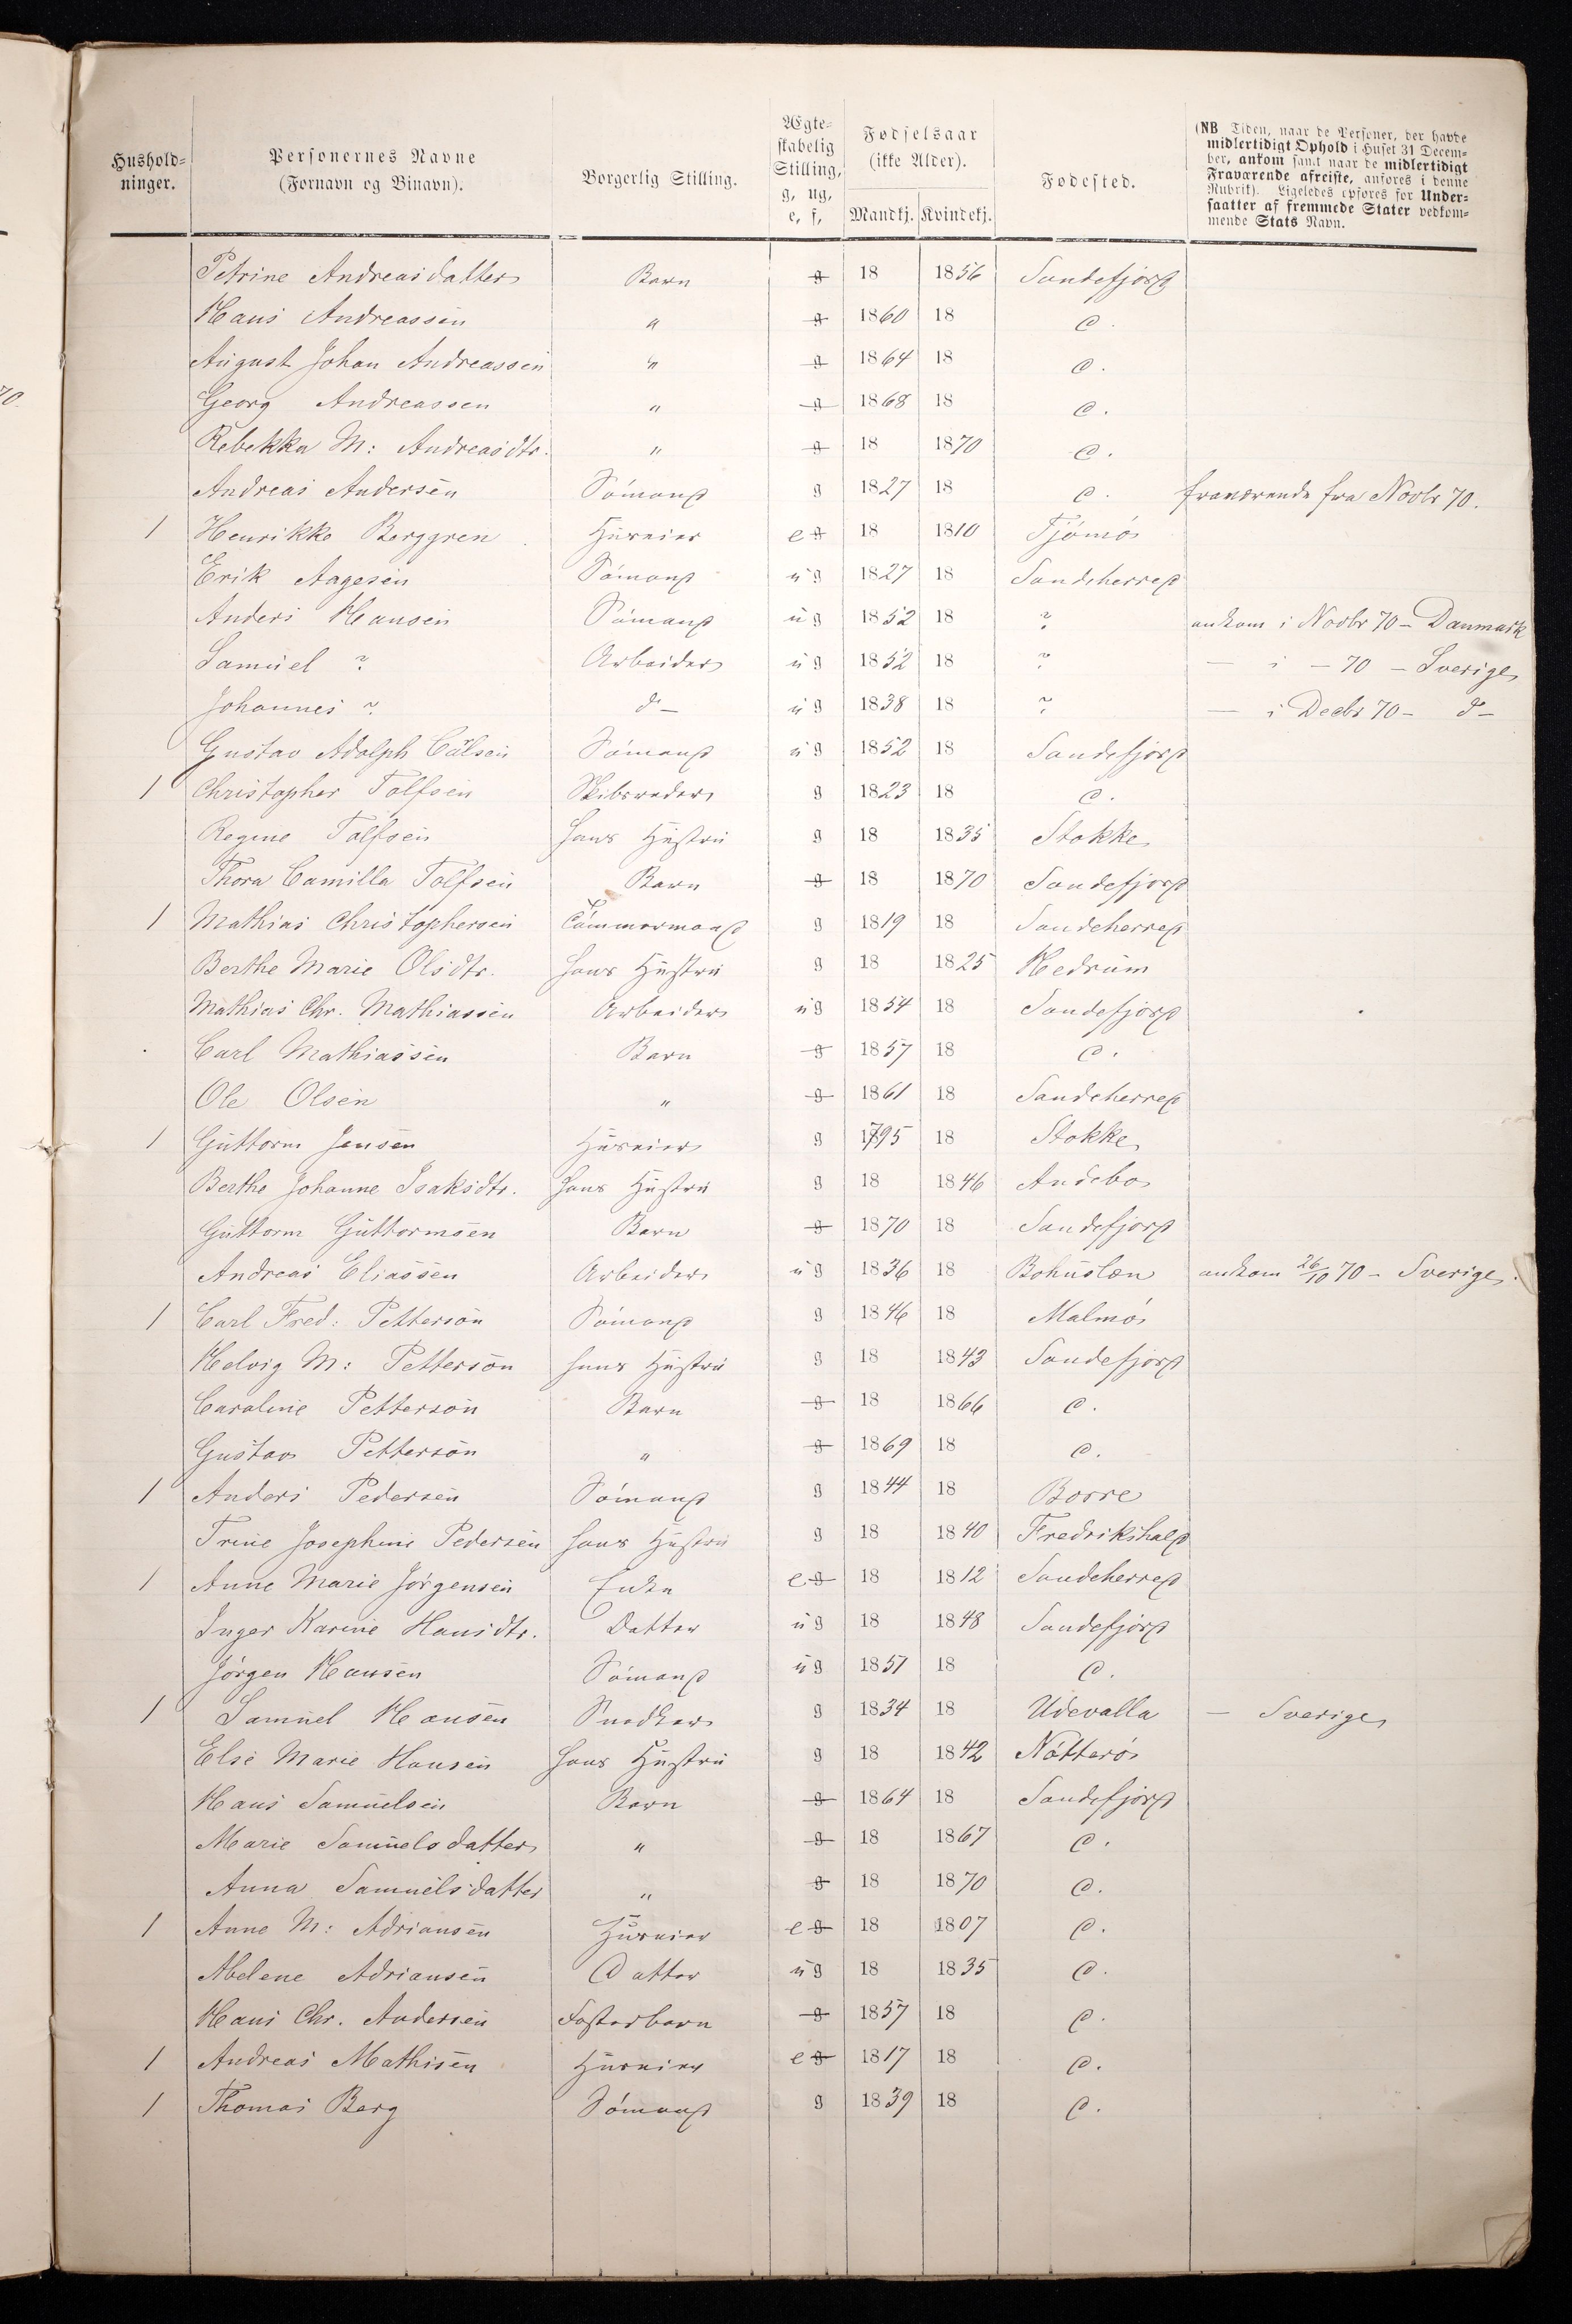 Hushold-
ninger.
Personernes Navne
(Fornavn og Binavn).
Borgerlig Stilling.
Ægte-
skabelig
Stilling,
g, ug,
e, f,
Fødselsaar
(ikke Alder).
Mandkj. Kvindekj.
Fødested.
(NB Tiden, naar de Personer, der havde
midlertidigt Ophold i Huset 31 Decem-
ber, ankom samt naar de midlertidigt
Fraværende afreiste, anføres i denne
Rubrik). Ligeledes opføres for Under-
saatter af fremmede Stater vedkom-
mende Stats Navn.
Petrine Andreasdatter Barn g 18 1856 Sandefjord
Hans Andreassen " g 1860 18 do.
August Johan Andreassen " g 1864 18 do.
Georg Andreassen " g 1868 18 do.
Rebekka M: Andreasdtr. " g 18 1870 do.
Andreas Andersen Sömand g 1827 18 do. fraværende fra Novbr 70.
1 Henrikke Berggren Huseier e g 18 1810 Tjömö
Erik Aagesen Sömand u g 1827 18 Sandeherred
Anders Hansen Sömand u g 1852 18 ? ankom i Novbr 70 - Danmark
Samuel ? Arbeider u g 1852 18 ? — i — 70 - Sverige
Johannes ? do — u g 1838 18 ? — i Decbr 70 - do —
Gustav Adolph Carlsen Sömand u g 1852 18 Sandefjord
1 Christopher Tolfsen Skibsreder g 1823 18 do.
Regine Tolfsen Hans Hustru g 18 1835 Stokke
Thora Camilla Tolfsen Barn g 18 1870 Sandefjord
1 Mathias Christophersen Tömmermand g 1819 18 Sandeherred
Berthe Marie Olsdtr. Hans Hustru g 18 1825 Hedrum
Mathias Chr. Mathiassen Arbeider u g 1854 18 Sandefjord
Carl Mathiassen Barn g 1857 18 do.
Ole Olsen " g 1861 18 Sandeherred
1 Guttorm Jensen Huseier g 1795 18 Stokke
Berthe Johanne Isaksdtr. Hans Hustru g 18 1846 Andebo
Guttorm Guttormsen Barn g 1870 18 Sandefjord
Andreas Eliassen Arbeider u g 1836 18 Bohuslæn ankom 26/10 70 - Sverige.
1 Carl Fred: Petterson Sömand g 1846 18 Malmö
Helvig M: Petterson Hans Hustru g 18 1843 Sandefjord
Caroline Petterson Barn g 18 1866 do.
Gustav Petterson " g 1869 18 do.
1 Anders Pedersen Sömand g 1844 18 Borre
Trine Josephine Pedersen Hans Hustru g 18 1840 Fredrikshald
1 Anne Marie Jörgensen Enke e g 18 1812 Sandeherred
Inger Karine Hansdtr. Datter u g 18 1848 Sandefjord
Jörgen Hansen Sömand u g 1851 18 do.
1 Samuel Hansen Snedker g 1834 18 Udevalla — Sverige
Else Marie Hansen Hans Hustru g 18 1842 Nötterö
Hans Samuelsen Barn g 1864 18 Sandefjord
Marie Samuelsdatter " g 18 1867 do.
Anna Samuelsdatter " g 18 1870 do.
1 Anne M: Adriansen Huseier e g 18 1807 do.
Abelene Adriansen Datter u g 18 1835 do.
Hans Chr. Andersen Fosterbarn g 1857 18 do.
1 Andreas Mathisen Huseier e g 1817 18 do.
1 Thomas Berg Sömand g 1839 18 do.